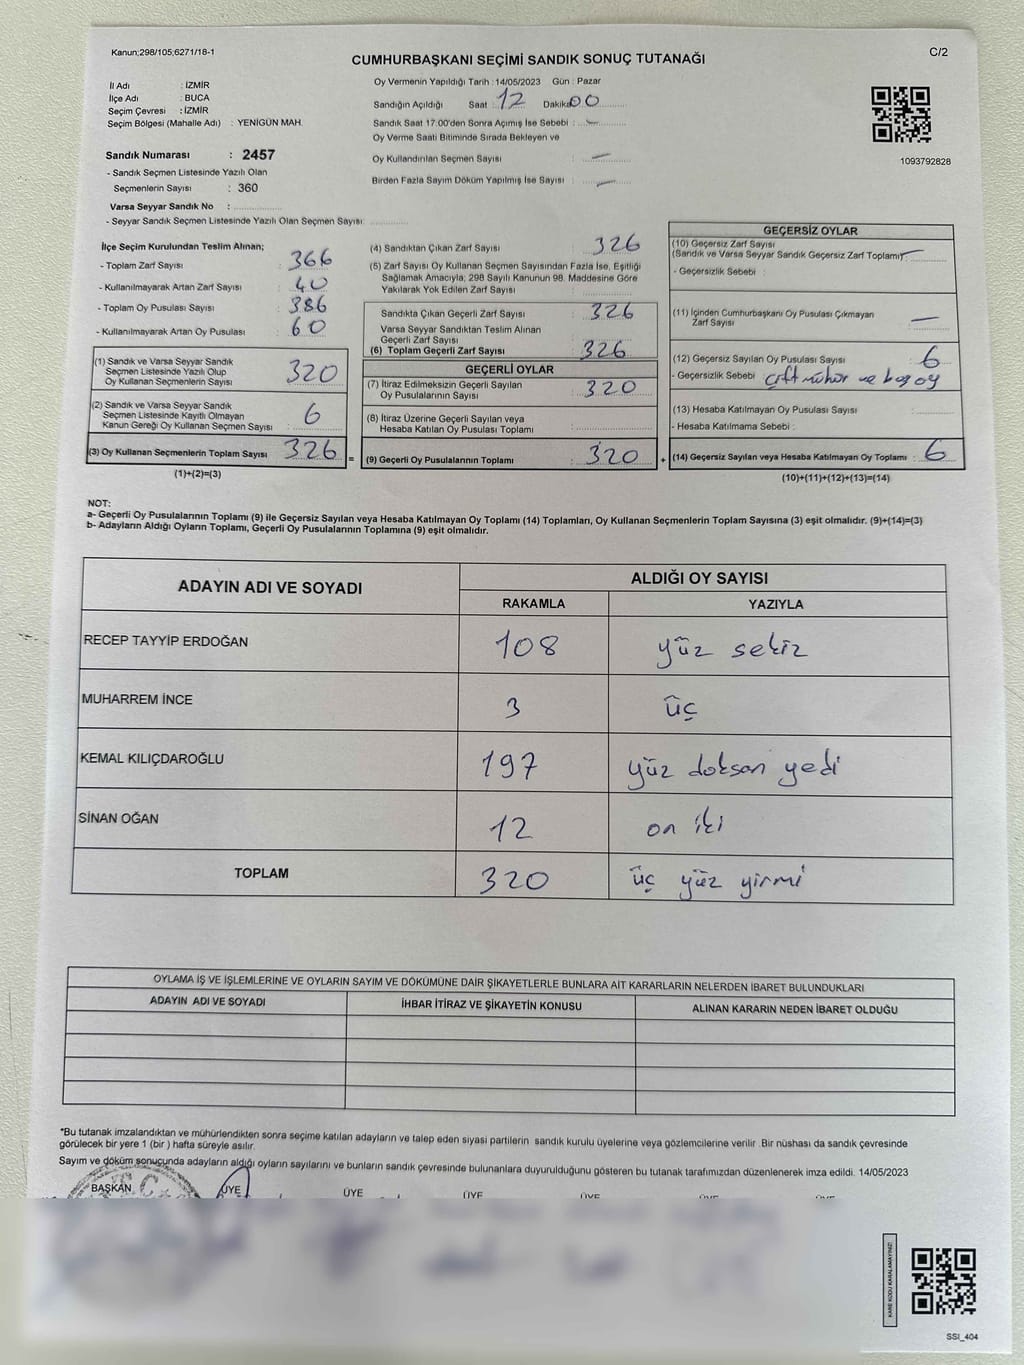 Kanun;298/105,6271/18-1
C/2
CUMHURBAŞKANI SEÇİMİ SANDIK SONUÇ TUTANAĞI
İl Adı : İZMİR
İlçe Adı : BUCA
Seçim Çevresi : İZMİR
Seçim Bölgesi (Mahalle Adı) : YENİGÜN MAH.
Sandık Numarası : 2457
- Sandık Seçmen Listesinde Yazılı Olan
Seçmenlerin Sayısı : 360
Varsa Seyyar Sandık No :
- Seyyar Sandık Seçmen Listesinde Yazılı Olan Seçmen Sayısı:
Oy Vermenin Yapıldığı Tarih : 14/05/2023 Gün : Pazar
Sandığın Açıldığı Saat : 12 Dakika 00
Sandık Saat 17:00'den Sonra Açımış İse Sebebi : —
Oy Verme Saati Bitiminde Sırada Bekleyen ve
Oy Kullandırılan Seçmen Sayısı : —
Birden Fazla Sayım Döküm Yapılmış İse Sayısı : —
1093792828
İlçe Seçim Kurulundan Teslim Alınan;
- Toplam Zarf Sayısı : 366
- Kullanılmayarak Artan Zarf Sayısı : 40
- Toplam Oy Pusulası Sayısı : 386
- Kullanılmayarak Artan Oy Pusulası : 60
(1) Sandık ve Varsa Seyyar Sandık
Seçmen Listesinde Yazılı Olup
Oy Kullanan Seçmenlerin Sayısı : 320
(2) Sandık ve Varsa Seyyar Sandık
Seçmen Listesinde Kayıtlı Olmayan
Kanun Gereği Oy Kullanan Seçmen Sayısı : 6
(3) Oy Kullanan Seçmenlerin Toplam Sayısı : 326 =
(1)+(2)=(3)
(4) Sandıktan Çıkan Zarf Sayısı : 326
(5) Zarf Sayısı Oy Kullanan Seçmen Sayısından Fazla İse, Eşitliği
Sağlamak Amacıyla; 298 Sayılı Kanunun 98. Maddesine Göre
Yakılarak Yok Edilen Zarf Sayısı :
Sandıkta Çıkan Geçerli Zarf Sayısı : 326
Varsa Seyyar Sandıktan Teslim Alınan
Geçerli Zarf Sayısı :
(6) Toplam Geçerli Zarf Sayısı : 326
GEÇERLİ OYLAR
(7) İtiraz Edilmeksizin Geçerli Sayılan
Oy Pusulalarının Sayısı : 320
(8) İtiraz Üzerine Geçerli Sayılan veya
Hesaba Katılan Oy Pusulası Toplamı :
(9) Geçerli Oy Pusulalarının Toplamı : 320 +
GEÇERSİZ OYLAR
(10) Geçersiz Zarf Sayısı
(Sandık ve Varsa Seyyar Sandık Geçersiz Zarf Toplamı) —
- Geçersizlik Sebebi :
(11) İçinden Cumhurbaşkanı Oy Pusulası Çıkmayan
Zarf Sayısı : —
(12) Geçersiz Sayılan Oy Pusulası Sayısı : 6
- Geçersizlik Sebebi : çift mühür ve boş oy
(13) Hesaba Katılmayan Oy Pusulası Sayısı :
- Hesaba Katılmama Sebebi :
(14) Geçersiz Sayılan veya Hesaba Katılmayan Oy Toplamı : 6
(10)+(11)+(12)+(13)=(14)
NOT:
a- Geçerli Oy Pusulalarının Toplamı (9) ile Geçersiz Sayılan veya Hesaba Katılmayan Oy Toplamı (14) Toplamları, Oy Kullanan Seçmenlerin Toplam Sayısına (3) eşit olmalıdır. (9)+(14)=(3)
b- Adayların Aldığı Oyların Toplamı, Geçerli Oy Pusulalarının Toplamına (9) eşit olmalıdır.
ADAYIN ADI VE SOYADI ALDIĞI OY SAYISI
RAKAMLA YAZIYLA
RECEP TAYYİP ERDOĞAN 108 yüz sekiz
MUHARREM İNCE 3 üç
KEMAL KILIÇDAROĞLU 197 yüz doksan yedi
SİNAN OĞAN 12 on iki
TOPLAM 320 üç yüz yirmi
OYLAMA İŞ VE İŞLEMLERİNE VE OYLARIN SAYIM VE DÖKÜMÜNE DAİR ŞİKAYETLERLE BUNLARA AİT KARARLARIN NELERDEN İBARET BULUNDUKLARI
ADAYIN ADI VE SOYADI İHBAR İTİRAZ VE ŞİKAYETİN KONUSU ALINAN KARARIN NEDEN İBARET OLDUĞU
*Bu tutanak imzalandıktan ve mühürlendikten sonra seçime katılan adayların ve talep eden siyasi partilerin sandık kurulu üyelerine veya gözlemcilerine verilir .Bir nüshası da sandık çevresinde
görülecek bir yere 1 (bir ) hafta süreyle asılır.
Sayım ve döküm sonucunda adayların aldığı oyların sayılarını ve bunların sandık çevresinde bulunanlara duyurulduğunu gösteren bu tutanak tarafımızdan düzenlenerek imza edildi. 14/05/2023
BAŞKAN ÜYE ÜYE ÜYE ÜYE ÜYE ÜYE
KARE KODU KARALAMAYINIZ!
SSI_404